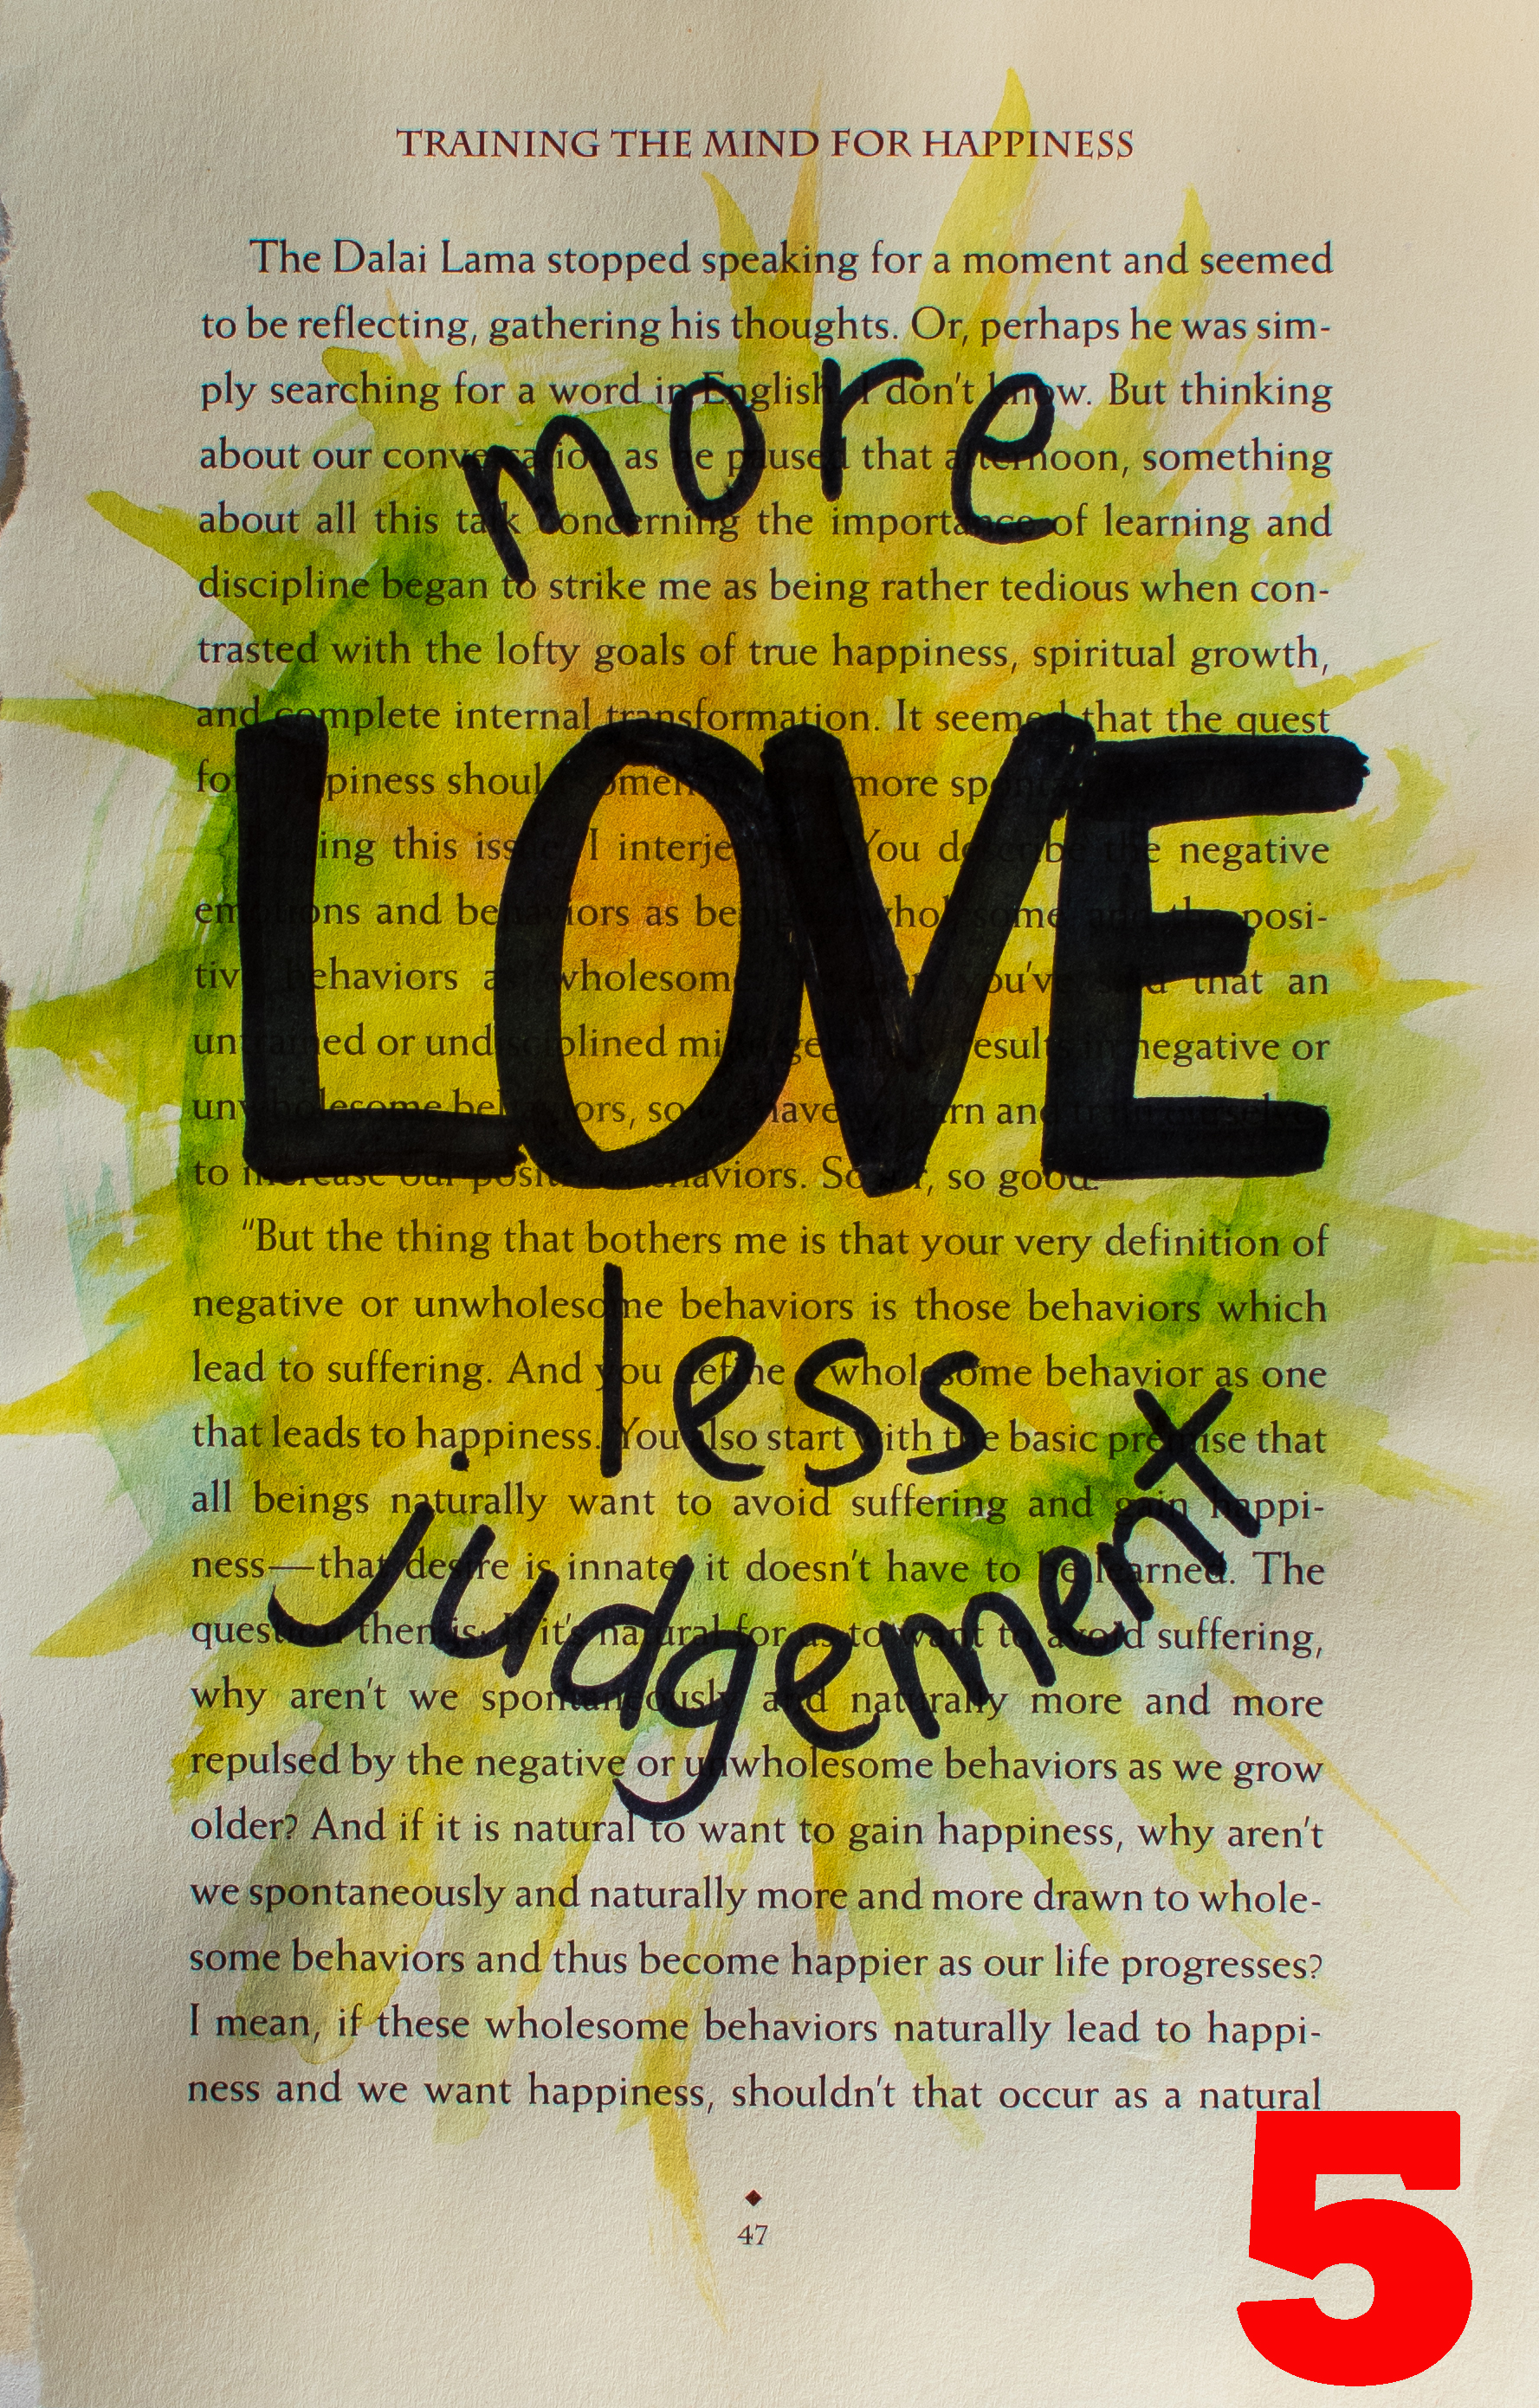 TRAINING THE MIND FOR HAPPINESS
The Dalai Lama stopped speaking for a moment and seemed
to be reflecting, gathering his thoughts. Or, perhaps he was sim-
ply searching for a word in English, I don't know. But thinking
about our conversation as he paused that afternoon, something
about all this talk concerning the importance of learning and
discipline began to strike me as being rather tedious when con-
trasted with the lofty goals of true happiness, spiritual growth,
and complete internal transformation. It seemed that the quest
for happiness should somehow more
this issue, I interjected, "You describe the negative
emotions and behaviors as being unwholesome and the posi-
tive behaviors as wholesome. you've said that an
untrained or undisciplined mind generally results in negative or
unwholesome behaviors, so we have to learn and train ourselves
to increase our positive behaviors. So far, so good.
"But the thing that bothers me is that your very definition of
negative or unwholesome behaviors is those behaviors which
lead to suffering. And you define a wholesome behavior as one
that leads to happiness. You also start with the basic premise that
all beings naturally want to avoid suffering and gain happi-
ness—that desire is innate, it doesn't have to be learned. The
question then is: If it's natural for us to want to avoid suffering,
why aren't we spontaneously and naturally more and more
repulsed by the negative or unwholesome behaviors as we grow
older? And if it is natural to want to gain happiness, why aren't
we spontaneously and naturally more and more drawn to whole-
some behaviors and thus become happier as our life progresses?
I mean, if these wholesome behaviors naturally lead to happi-
ness and we want happiness, shouldn't that occur as a natural
47
more
LOVE
less
judgement
5